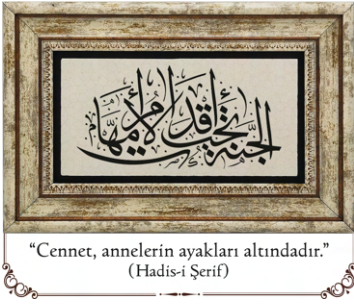 الجنة تحت أقدام الأمهات
“Cennet, annelerin ayakları altındadır.”
(Hadis-i Şerif)